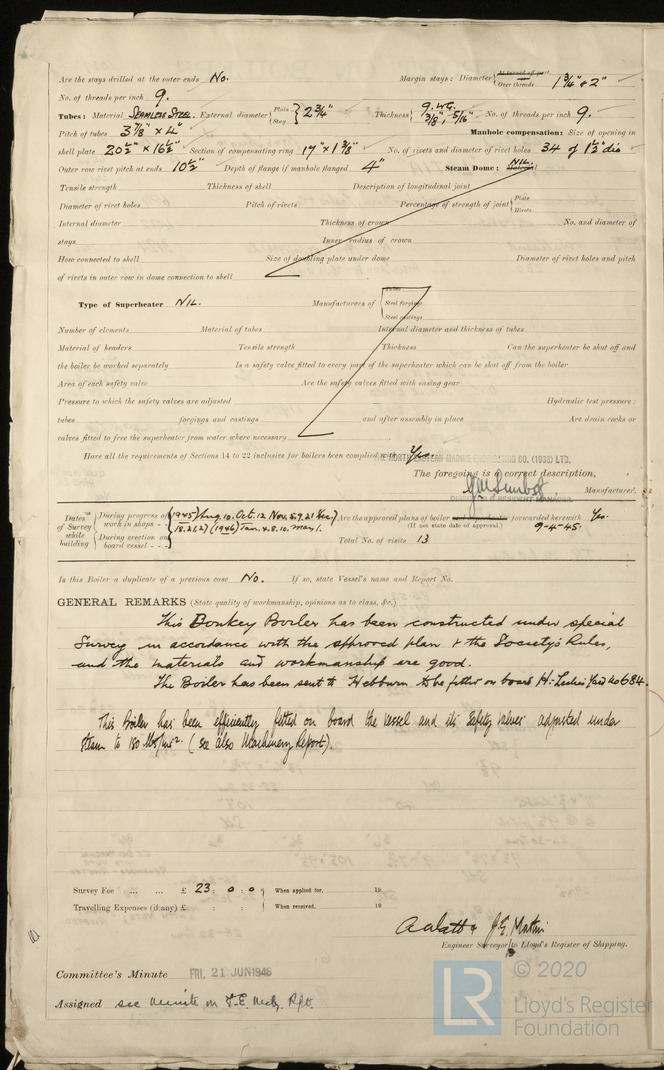 Are the stays drilled at the outer ends No. Margin stays: Diameter { At turned off part, Over threads 1¾" & 2"
No. of threads per inch 9.
Tubes: Material SEAMLESS STEEL. External diameter { Plain Stay } 2¾" Thickness { 9. W.G. 3/8", 5/16" No. of threads per inch 9.
Pitch of tubes 3⅞" × 4" Manhole compensation: Size of opening in
shell plate 20½" × 16½" Section of compensating ring 17" × 1⅜" No. of rivets and diameter of rivet holes 34 of 1½" dia
Outer row rivet pitch at ends 10½" Depth of flange if manhole flanged 4" Steam Dome: Material NIL.
Tensile strength Thickness of shell Description of longitudinal joint
Diameter of rivet holes Pitch of rivets Percentage of strength of joint { Plate Rivets
Internal diameter Thickness of crown No. and diameter of
stays Inner radius of crown
How connected to shell Size of doubling plate under dome Diameter of rivet holes and pitch
of rivets in outer row in dome connection to shell
Type of Superheater NIL. Manufacturers of { Tubes Steel forgings Steel castings
Number of elements Material of tubes Internal diameter and thickness of tubes
Material of headers Tensile strength Thickness Can the superheater be shut off and
the boiler be worked separately Is a safety valve fitted to every part of the superheater which can be shut off from the boiler
Area of each safety valve Are the safety valves fitted with easing gear
Pressure to which the safety valves are adjusted Hydraulic test pressure:
tubes forgings and castings and after assembly in place Are drain cocks or
valves fitted to free the superheater from water where necessary
Have all the requirements of Sections 14 to 22 inclusive for boilers been complied with Yes.
NORTH EASTERN MARINE ENGINEERING CO. (1938) LTD.
The foregoing is a correct description,
Manufacturer.
DIRECTOR & RESIDENT MANAGER
Dates of Survey while building { During progress of work in shops - - (1945) Aug. 10. Oct. 12. Nov. 5. 9. 21 Dec.
During erection on board vessel - - - 18. 21. 2) (1946) Jan. 4. 8. 10. May 1.
Are the approved plans of boiler and superheater forwarded herewith Yes.
(If not state date of approval.) 9-4-45.
Total No. of visits 13
Is this Boiler a duplicate of a previous case No. If so, state Vessel's name and Report No.
GENERAL REMARKS (State quality of workmanship, opinions as to class, &c.)
This Donkey Boiler has been constructed under special
Survey in accordance with the approved plan & the Society's Rules,
and the materials and workmanship are good.
The Boiler has been sent to Hebburn to be fitted on board H. Leslie's Yard No 684.
This Boiler has been efficiently fitted on board the vessel and its Safety valves adjusted under
steam to 180 lbs/ins². (see also Machinery Report).
Survey Fee ... ... £ 23 : 0 : 0 When applied for, 19
Travelling Expenses (if any) £ : : When received, 19
J. G. Martin
Engineer Surveyor to Lloyd's Register of Shipping.
Committee's Minute FRI. 21 JUN 1946
Assigned see minute on F.E. Mchy. Rpt.
LR © 2020
Lloyd's Register
Foundation